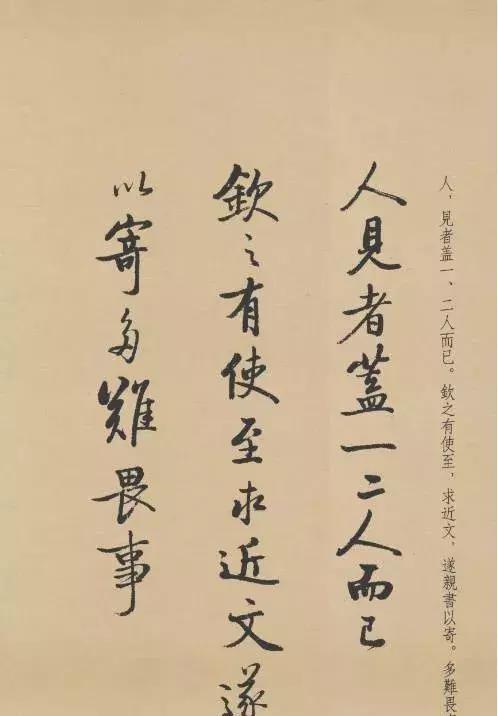 人，見者蓋一、二人而已。欽之有使至，求近文，遂親書以寄。多難畏
人見者蓋一二人而已
欽之有使至求近文遂
以寄多難畏事